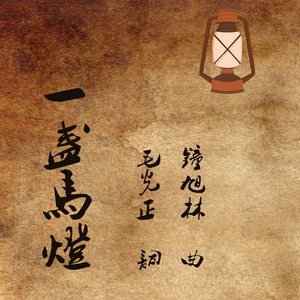 一盞馬燈
鐘旭林 曲
毛光正 詞